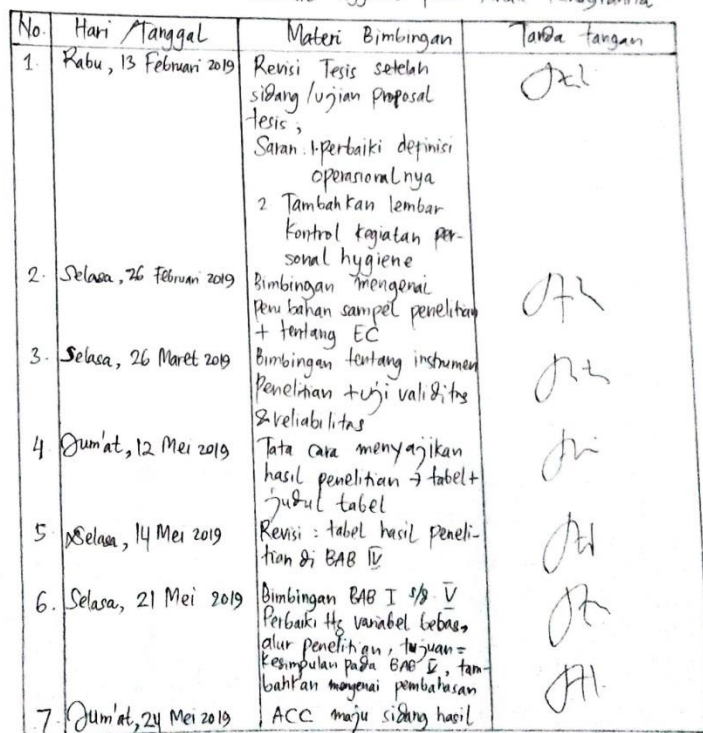 No. Hari / Tanggal Materi Bimbingan Tanda tangan
1. Rabu, 13 Februari 2019 Revisi Tesis setelah
sidang / ujian proposal
tesis,
Saran : 1. perbaiki definisi
operasionalnya
2 Tambahkan lembar
kontrol kegiatan per-
sonal hygiene
2. Selasa, 26 Februari 2019 Bimbingan mengenai
perubahan sampel penelitian
+ tentang EC
3. Selasa, 26 Maret 2019 Bimbingan tentang instrumen
Penelitian + uji validitas
& reliabilitas
4 Jum'at, 12 Mei 2019 Tata cara menyajikan
hasil penelitian → tabel +
judul tabel
5 Selasa, 14 Mei 2019 Revisi : tabel hasil peneli-
tian di BAB IV
6. Selasa, 21 Mei 2019 Bimbingan BAB I s/d V
Perbaiki variabel bebas,
alur penelitian, tujuan =
Kesimpulan pada BAB V, tam-
bahkan mengenai pembahasan
7. Jum'at, 24 Mei 2019 ACC maju sidang hasil